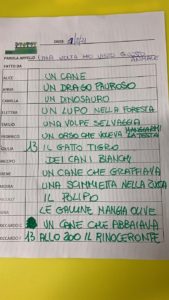 PAROLA APPELLO UNA VOLTA HO VISTO QUESTO ANIMALE
FATTO DA
ALICE UN CANE
ANNA UN DRAGO PAUROSO
CAMILLA UN DINOSAURO
ELETTRA UN LUPO NELLA FORESTA
EMILIO UNA VOLPE SELVAGGIA
FEDERICO UN ORSO CHE VOLEVA MANGIARMI LA TESTA
GIULIA 13 IL GATTO TIGRO
JACOPO DEI CANI BIANCHI
IRENE UN CANE CHE GRAFFIAVA
UNA SCIMMIETTA NELLA
IL POLIPO
LE GALLINE MANGIA OLIVE
RICCARDO UN CANE CHE ABBAIAVA
RICCARDO 13 ALLO ZOO IL RINOCERONTE